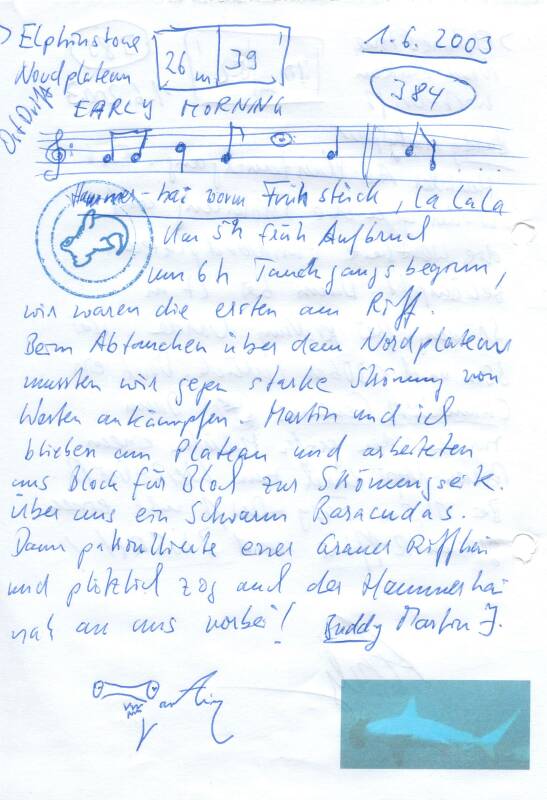 Elphinstone
Nordplateau
26 m 39
1.6.2003
384
EARLY MORNING
Hammer-hai vorm Frühstück, la lala
Um 5h früh Aufbruch
um 6h Tauchgangsbeginn,
wir waren die ersten am Riff.
Beim Abtauchen über dem Nordplateau
mussten wir gegen starke Strömung von
Westen ankämpfen. Martin und ich
blieben am Plateau und arbeiteten
uns Block für Block zur Strömungsseite.
Über uns ein Schwarm Baracudas.
Dann patroullierte einer Grauer Riffhai
und plötzlich zog auch der Hammerhai
nah an uns vorbei! Buddy Martin J.